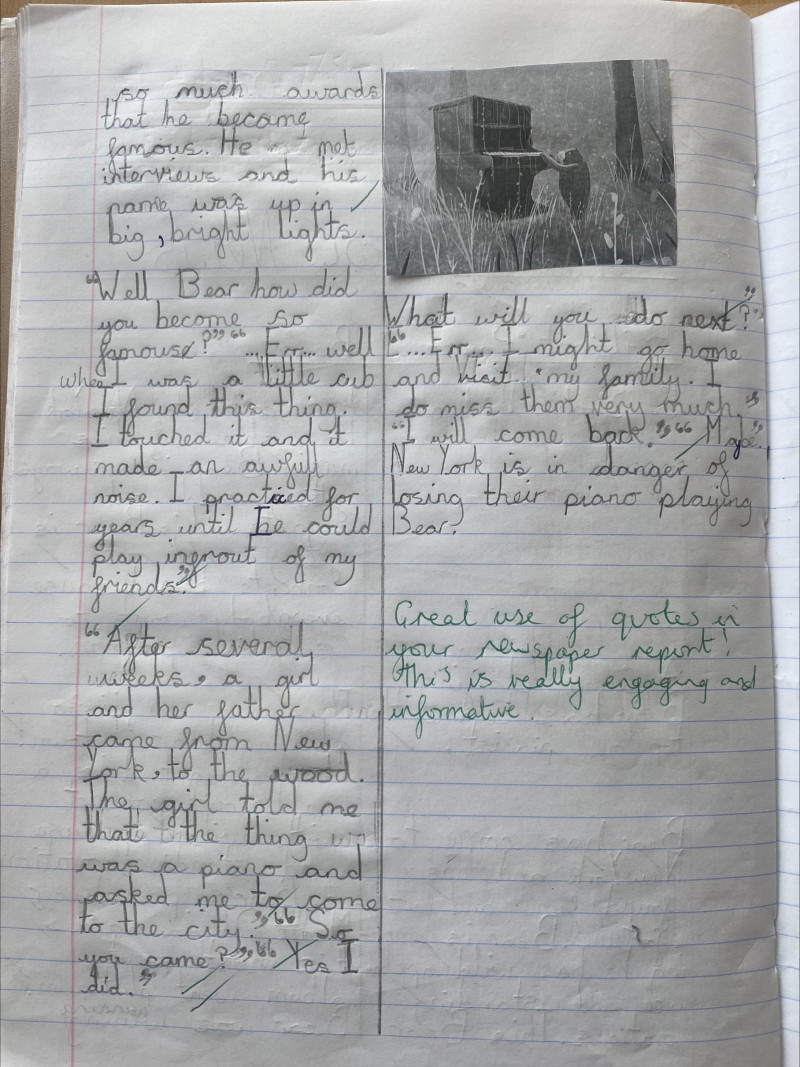 so much awards
that he became
famous. He met
interviews and his
name was up in
big, bright lights.
"Well Bear how did
you become so
famouse?" "...Err... well
when I was a little cub
I found this thing.
I touched it and it
made an awfull
noise. I practiced for
years until he could
play infrout of my
friends."
"After several
weeks, a girl
and her father
came from New
York, to the wood.
The girl told me
that the thing
was a piano and
asked me to come
to the city." "So
you came?" "Yes I
did."
What will you do next?"
"...Err... I might go home
and visit my family. I
do miss them very much."
"I will come back." "Maybe."
New York is in danger of
losing their piano playing
Bear?
Great use of quotes in
your newspaper report!
This is really engaging and
informative.